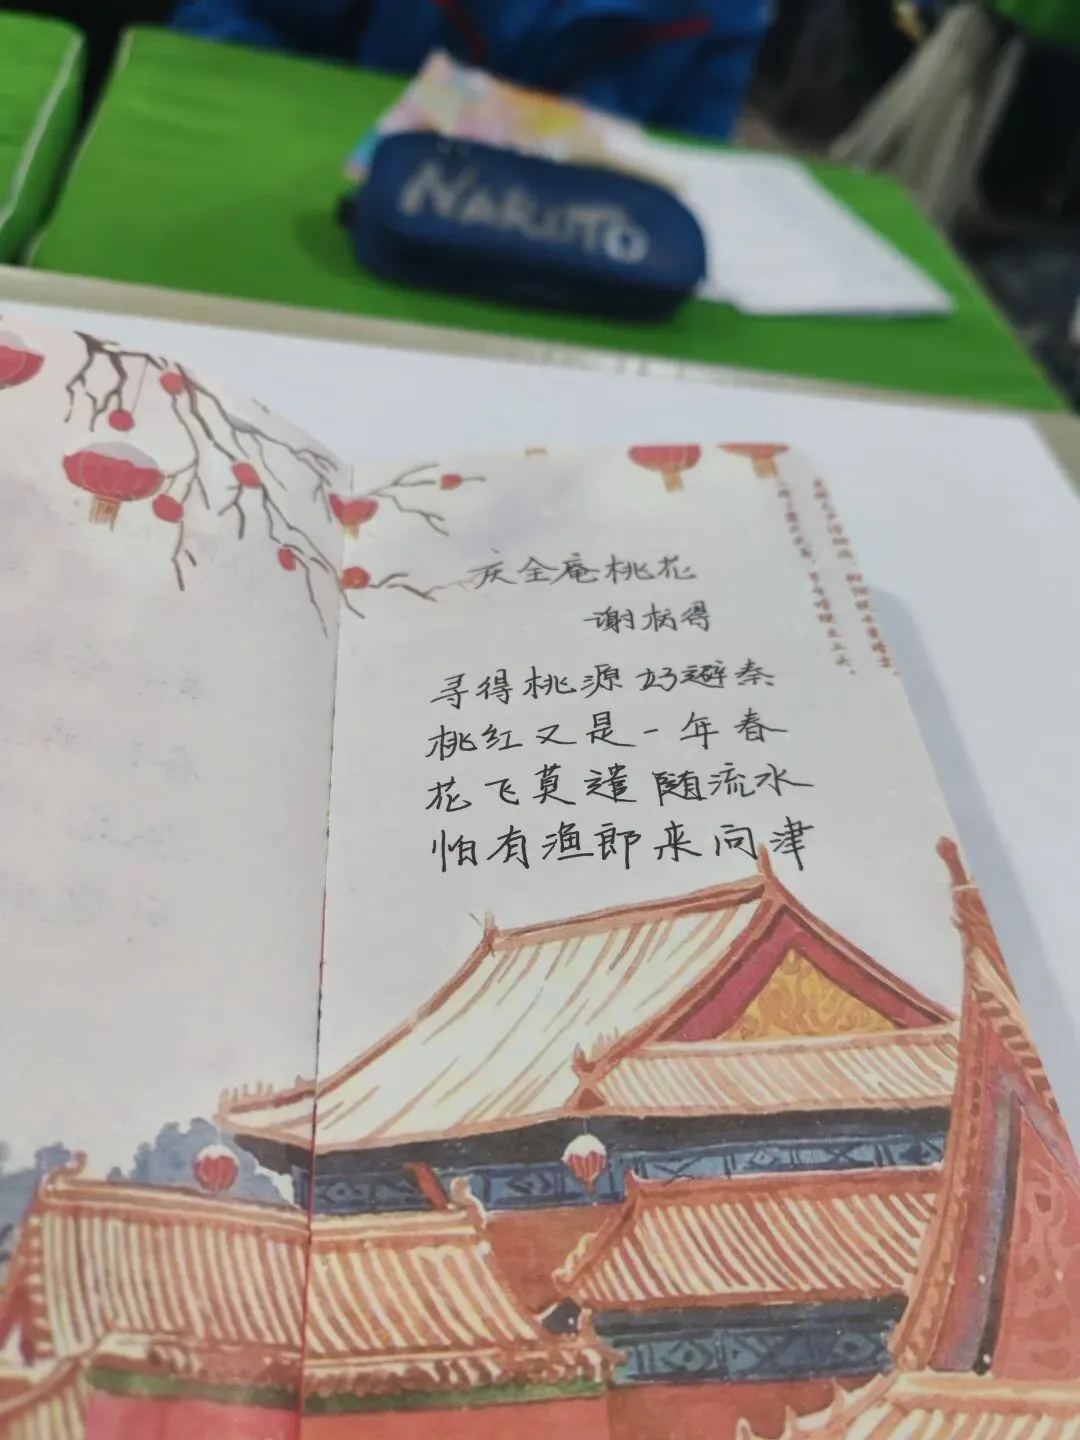 NARUTO
庆全庵桃花
谢病得
寻得桃源好避秦
桃红又是一年春
花飞莫遣随流水
怕有渔郎来问津